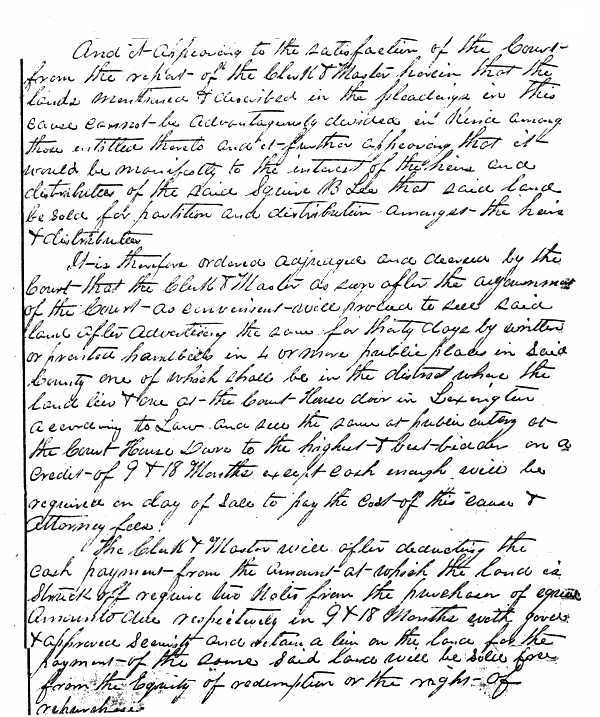 And it appearing to the satisfaction of the Court
from the report of the Clerk & Master herein that the
lands mentioned & described in the pleadings in this
cause cannot be advantageously divided in kind among
those entitled thereto and it further appearing that it
would be manifestly to the interest of the heirs and
distributees of the said Squire B Lee that said land
be sold for partition and distribution amongst the heirs
& distributees
It is therefore ordered adjudged and decreed by the
Court that the Clerk & Master as soon after the adjournment
of the Court as convenient will proceed to sell said
land after advertising the same for thirty days by written
or printed handbills in 4 or more public places in said
County one of which shall be in the district where the
land lies & one at the Court House door in Lexington
according to Law and sell the same at public outcry at
the Court House Door to the highest & best bidder on a
credit of 9 & 18 Months except cash enough will be
required on day of sale to pay the cost of this cause &
attorney fees
The Clerk & Master will after deducting the
cash payment from the amount at which the land is
struck off require two Notes from the purchaser of equal
Amounts due respectively in 9 & 18 Months with good
& approved Security and retain a lien on the land for the
payment of the same Said land will be sold free
from the Equity of redemption or the right of
repurchase